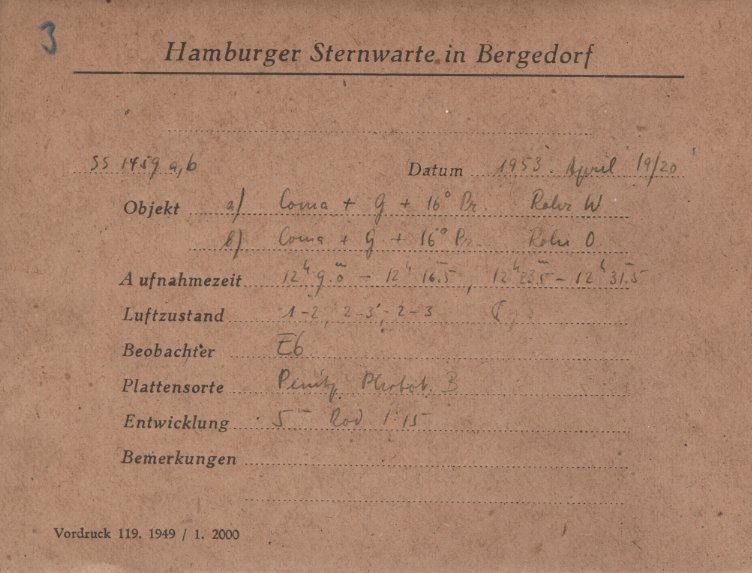 3
Hamburger Sternwarte in Bergedorf
SS 1459 a,b Datum 1953 April 19/20
Objekt a) Coma + g + 16° Pr. Rohr W
b) Coma + g + 16° Pr. Rohr O
Aufnahmezeit 12ʰ 9.ᵐ0 – 12ʰ 16.ᵐ5, 12ʰ 23.ᵐ5 – 12ʰ 31.ᵐ5
Luftzustand 1-2, 2-3, 2-3
Beobachter
Plattensorte B
Entwicklung 5ᵐ Rod 1:15
Bemerkungen
Vordruck 119. 1949 / 1. 2000